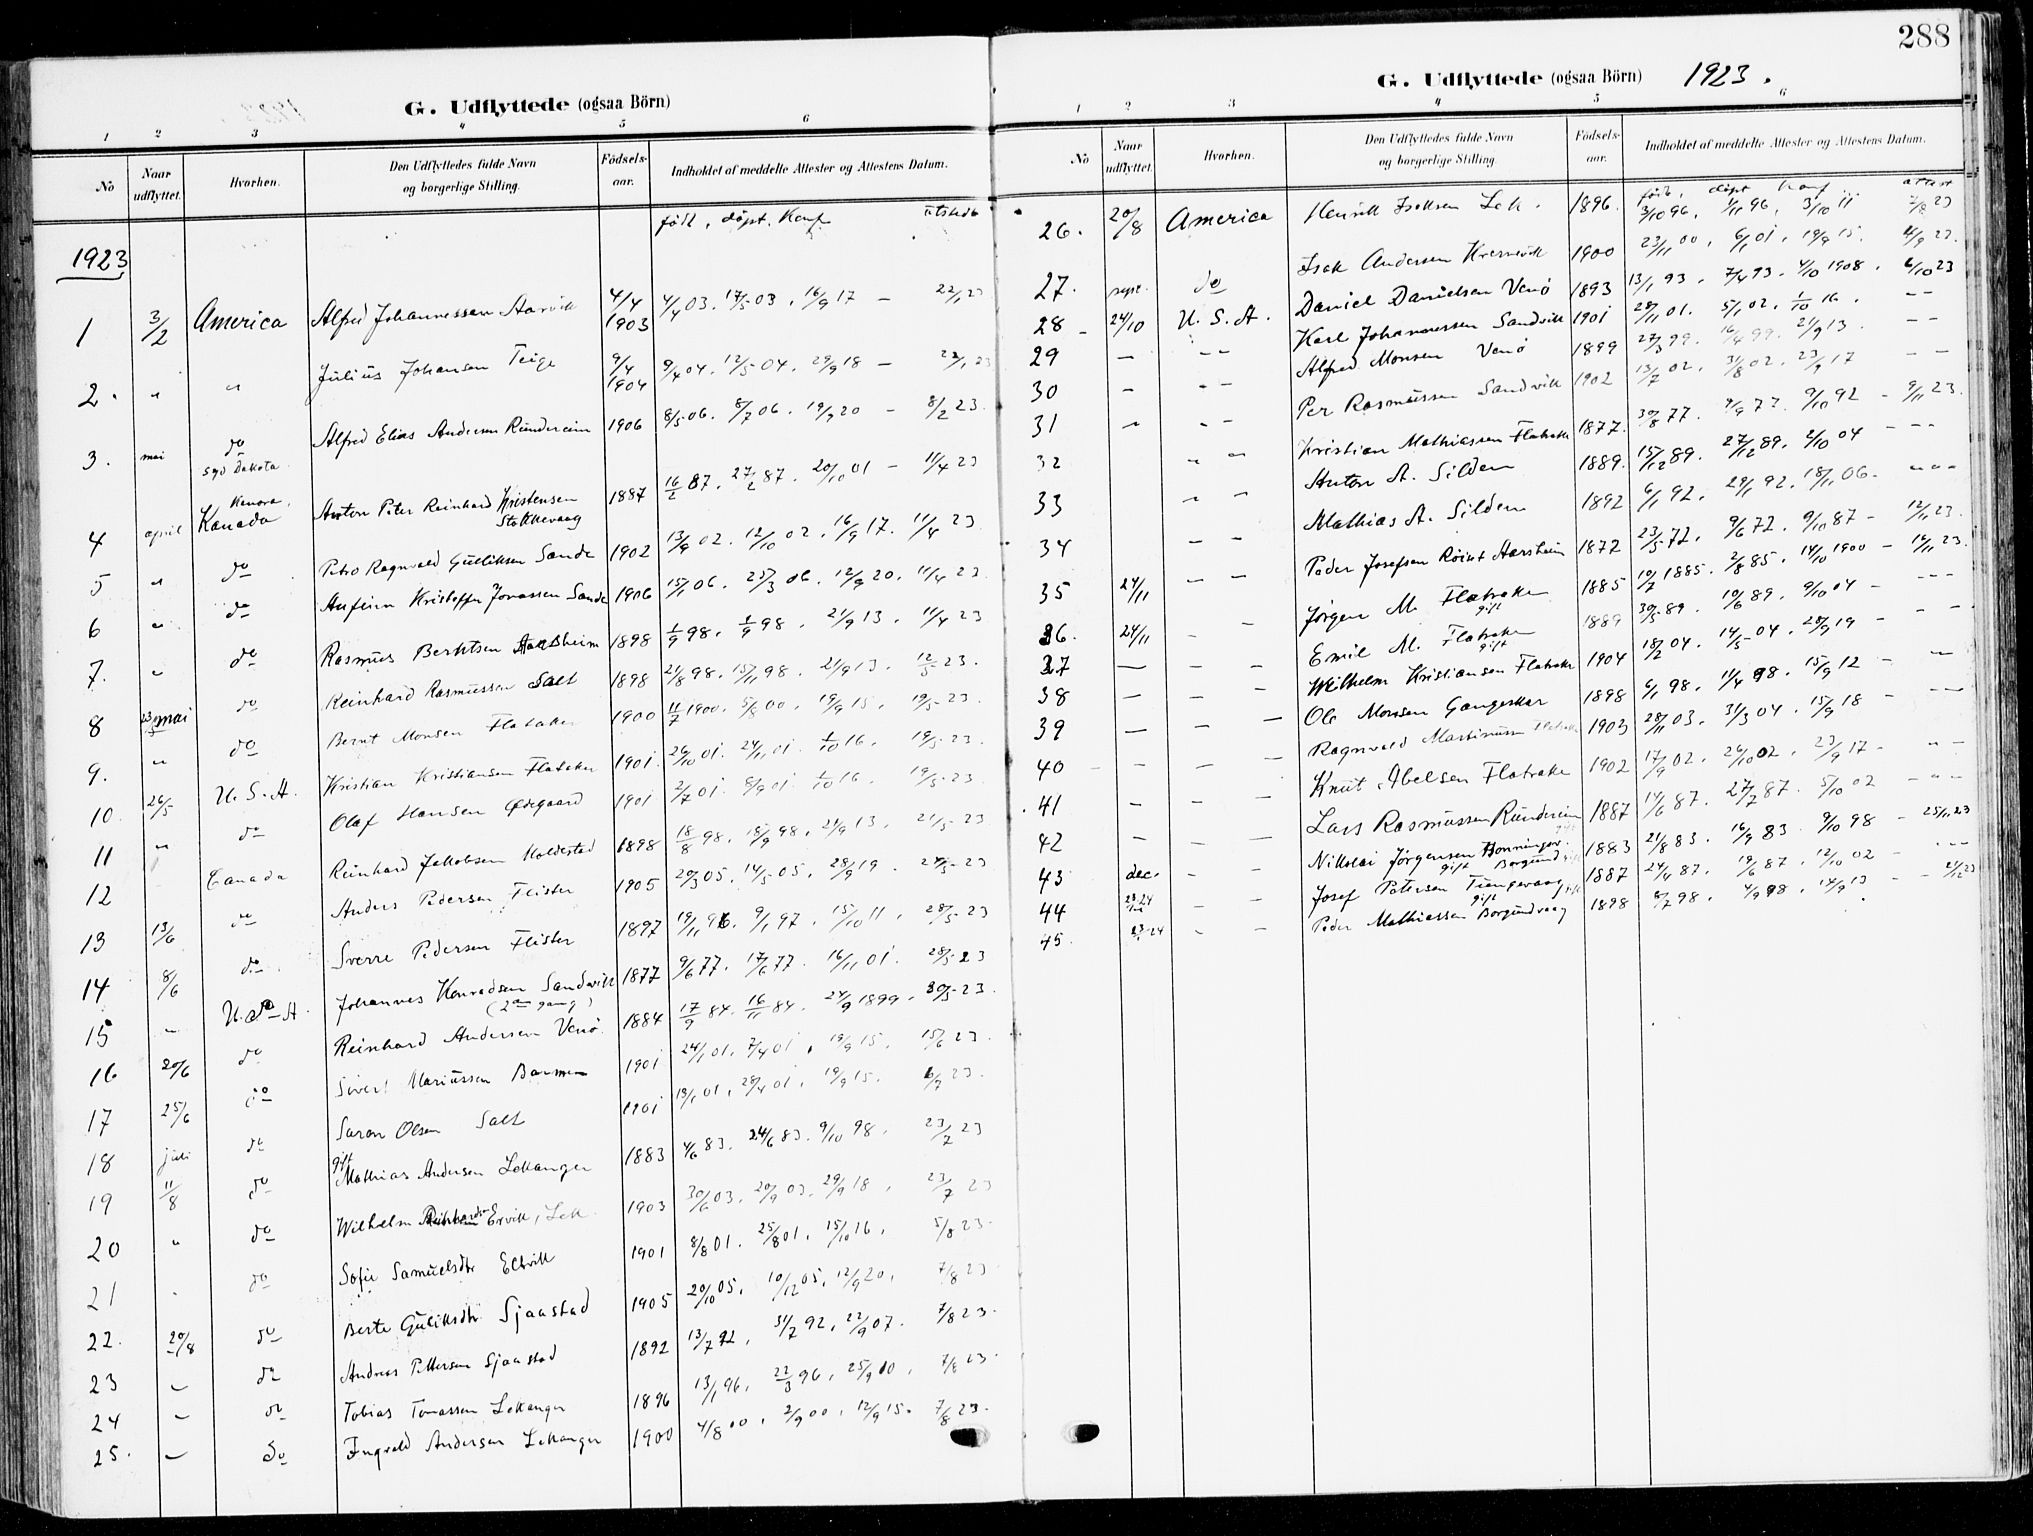 288
G. Udflyttede (ogsaa Börn)
1 2 3 4 5 6
No Naar udflyttet. Hvorhen. Den Udflyttedes fulde Navn og borgerlige Stilling. Födsels-aar. Indholdet af meddelte Attester og Attestens Datum.
födt, döpt. Konf utstedt
1923
1 3/2 America Alfred Johannessen Aarvik 4/4 1903 4/4 03. 17/5 03. 16/9 17 — 22/1 23
2. " " Julius Johansen Teige 9/4 1904 9/4 04. 12/5 04. 29/9 18 — 22/1 23
3. mai do Syd Dakota Alfred Elias Andersen Rundereim 1906 8/5 06. 8/7 06. 19/9 20 — 8/2 23.
4 april Kenora, Kanada Anton Peter Reinhard Kristensen Stokkevaag 1887 16/2 87. 27/2 87. 20/10 01 — 11/4 23
5 " do Petro Ragnvald Gulliksen Sande 1902 13/9 02. 12/10 02. 16/9 17. 11/4 23
6 " do Anfinn Kristoffer Jonassen Sande 1906 15/1 06. 25/3 06. 12/9 20. 11/4 23
7. " do Rasmus Berntsen Aarsheim 1898 1/9 98. 1/9 98. 21/9 13. 11/4 23
8 23/5 mai do Reinhard Rasmussen Salt 1898 21/8 98. 15/11 98. 21/9 13. 12/5 23.
9. " do Bernt Monsen Flatraker 1900 11/7 1900. 5/8 00. 19/9 15. 19/5 23
10. 26/5 U.S.A. Kristian Kristiansen Flatraker 1901. 26/10 01. 24/11 01. 1/10 16. 19/5 23.
11 " do Olaf Hansen Ødegaard 1901 2/7 01. 8/9 01. 1/10 16. 19/5 23.
12 Canada Reinhard Jakobsen Koldestad 1898 18/8 98. 18/9 98. 21/9 13. 21/5 23
13 13/6 do Anders Pedersen Flister 1905 20/3 05. 14/5 05. 28/9 19. 24/5 23
14 8/6 do Sverre Pedersen Flister 1897 19/11 96. 9/1 97. 15/10 11. 28/5 23
15 " U.S.A. Johannes Konradsen Sandvik (2den gang) 1877 9/6 77. 17/6 77. 16/11 01. 28/5 23
16 20/6 do Reinhard Andersen Venö 1884 17/9 84. 16/11 84. 24/9 1899. 30/5 23.
17 25/6 do Sivert Mariussen Barmen 1901 24/1 01. 7/4 01. 19/9 15. 15/6 23.
18 juli do Saron Olsen Salt 1901 13/1 01. 28/4 01. 19/9 15. 6/7 23.
19 11/8 do gift Mathias Andersen Lekanger 1883 4/6 83. 24/6 83. 9/10 98. 23/7 23
20 " do Wilhelm Ervik, Lek. 1903 30/6 03. 20/9 03. 29/9 18. 23/7 23
21 do Sofie Samuelsdtr Eltvik 1901 8/8 01. 25/8 01. 15/10 16. 5/8 23.
22. 20/8 do Berte Guliksdtr Sjaastad 1905 20/10 05. 10/12 05. 12/9 20. 7/8 23
23 " do Andreas Pettersen Sjaastad 1892 13/7 92. 31/7 92. 22/9 07. 7/8 23.
24 " do Tobias Tomassen Lekanger 1896 13/1 96. 22/3 96. 25/9 10. 7/8 23.
25. " Do Ingvald Andersen Lekanger 1900 4/8 00. 2/9 00. 12/9 15. 7/8 23.
G. Udflyttede (ogsaa Börn) 1923.
1 2 3 4 5 6
No Naar udflyttet. Hvorhen. Den Udflyttedes fulde Navn og borgerlige Stilling. Födsels-aar. Indholdet af meddelte Attester og Attestens Datum.
födt, döpt Konf attest
26. 20/8 America Henrik Isaksen Lek. 1896. 3/10 96. 1/11 96. 3/10 11 7/8 23
27. sept. do Isak Andersen 1900 23/11 00. 6/1 01. 19/9 15. 4/9 23.
28 24/10 U.S.A. Daniel Danielsen Venö 1893 13/1 93. 7/4 93. 4/10 1908. 6/10 23
29 — — Karl Johannessen Sandvik 1901 28/11 01. 5/1 02. 1/10 16. — —
30 — — Alfred Monsen Venö 1899 27/3 99. 16/4 99. 21/9 13. — —
31 — — Per Rasmussen Sandvik 1902 13/7 02. 31/8 02. 23/9 17 — —
32 — — Kristian Mathiassen Flatraker 1877. 30/8 77. 9/9 77. 9/10 92 — 9/11 23.
33 — — Anton A. Silden 1889. 15/12 89. 27/12 89. 2/10 04 — — —
34 — — Mathias A. Silden 1892 6/1 92. 29/1 92. 18/11 06. — — —
35 24/11 — — Peder Josefsen Röinet Aarsheim 1872 23/5 72. 9/6 72. 9/10 87 — 12/11 23.
36. 24/11 — — Jörgen M. Flatraker gift 1885 10/7 1885. 2/8 85. 14/10 1900 — 14/11 23.
37 — — — Emil M. Flatraker gift 1889 30/5 89. 10/6 89. 9/10 04 — — — —
38 — — — Wilhelm Kristiansen Flatraker 1904 18/2 04. 14/5 04. 28/9 19 — — —
39 — — — Ole Monsen Gangeskar 1898 6/1 98. 11/4 98. 15/9 12 — —
40 — — — Ragnvald Martinussen Flatrake 1903 28/11 03. 31/3 04. 15/9 18 — —
41 — — — Knut Abelsen Flatraker 1902 17/9 02. 26/10 02. 23/9 17 — — —
42 — — Lars Rasmussen Runderein gift 1887 14/6 87. 27/7 87. 5/10 02 — — —
43 dec. — — Nikolai Jörgensen Honningsv. gift 1883 21/8 83. 16/9 83. 9/10 98 — 25/11 23
44 — — Josef Petersen gift 1887 24/4 87. 19/6 87. 12/10 02 — — —
45. — — Peder Mathiassen Borgundvaag 1898 8/7 98. 4/9 98. 14/9 13 — — 21/12 23